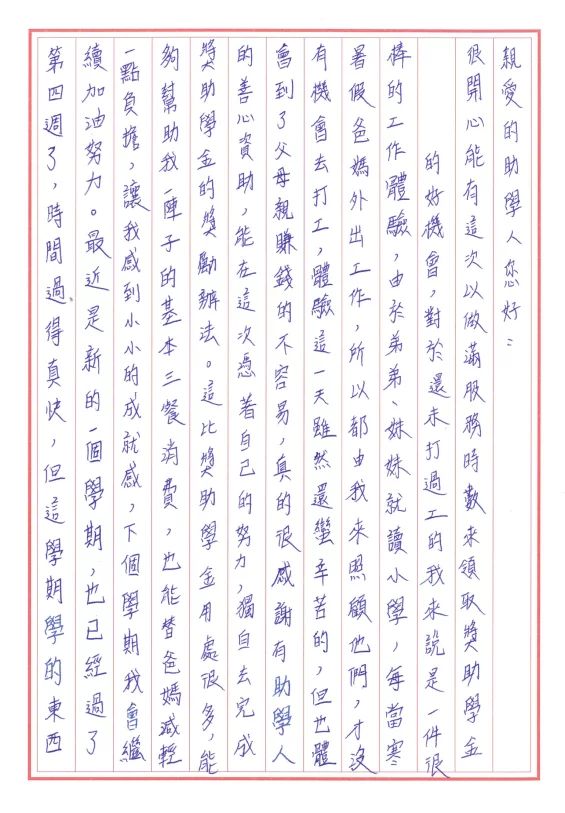 親愛的助學人您好：
很開心能有這次以做滿服務時數來領取獎助學金
的好機會，對於還未打過工的我來說是一件很
棒的工作體驗，由於弟弟、妹妹就讀小學，每當寒
暑假爸媽外出工作，所以都由我來照顧他們，才沒
有機會去打工，體驗這一天雖然還蠻辛苦的，但也體
會到了父母親賺錢的不容易，真的很感謝有助學人
的善心資助，能在這次憑著自己的努力，獨自去完成
獎助學金的獎勵辦法。這比獎助學金用處很多，能
夠幫助我一陣子的基本三餐消費，也能替爸媽減輕
一點負擔，讓我感到小小的成就感，下個學期我會繼
續加油努力。最近是新的一個學期，也已經過了
第四週了，時間過得真快，但這學期學的東西